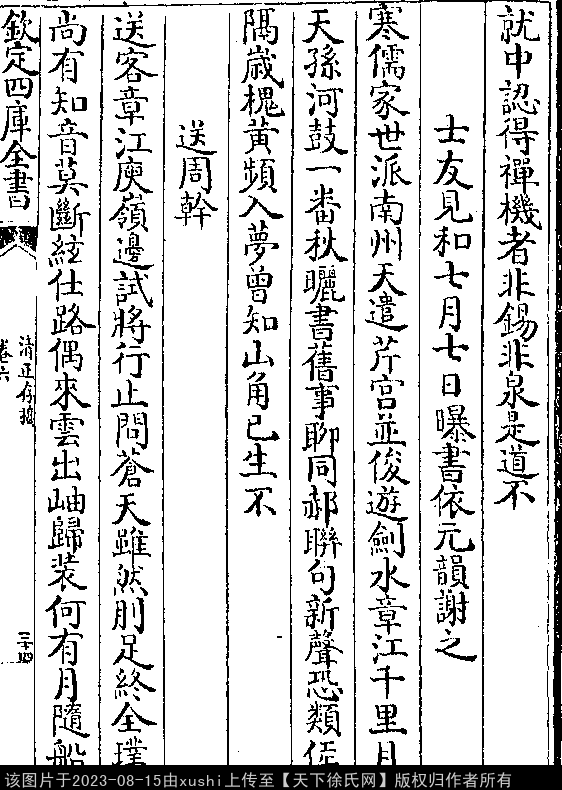 就中認得禪機者非錫非泉是道不
士友見和七月七日曝書依元韻謝之
寒儒家世派南州天遣芹宮並俊遊劍水章江千里月
天孫河鼓一番秋曬書舊事聊同郝聯句新聲恐類侯
隅歲槐黃頻入夢曾知山角已生不
送周幹
送客章江庾嶺邊試將行止問蒼天雖然刖足終全璞
尚有知音莫斷絃仕路偶來雲出岫歸装何有月隨船
欽定四庫全書
清正存稿
卷六
三十四
该图片于2023-08-15由xushi上传至【天下徐氏网】版权归作者所有